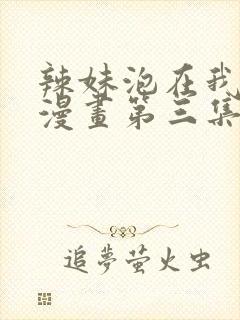 辣妹泡在我
漫畫第三集
追夢螢火虫